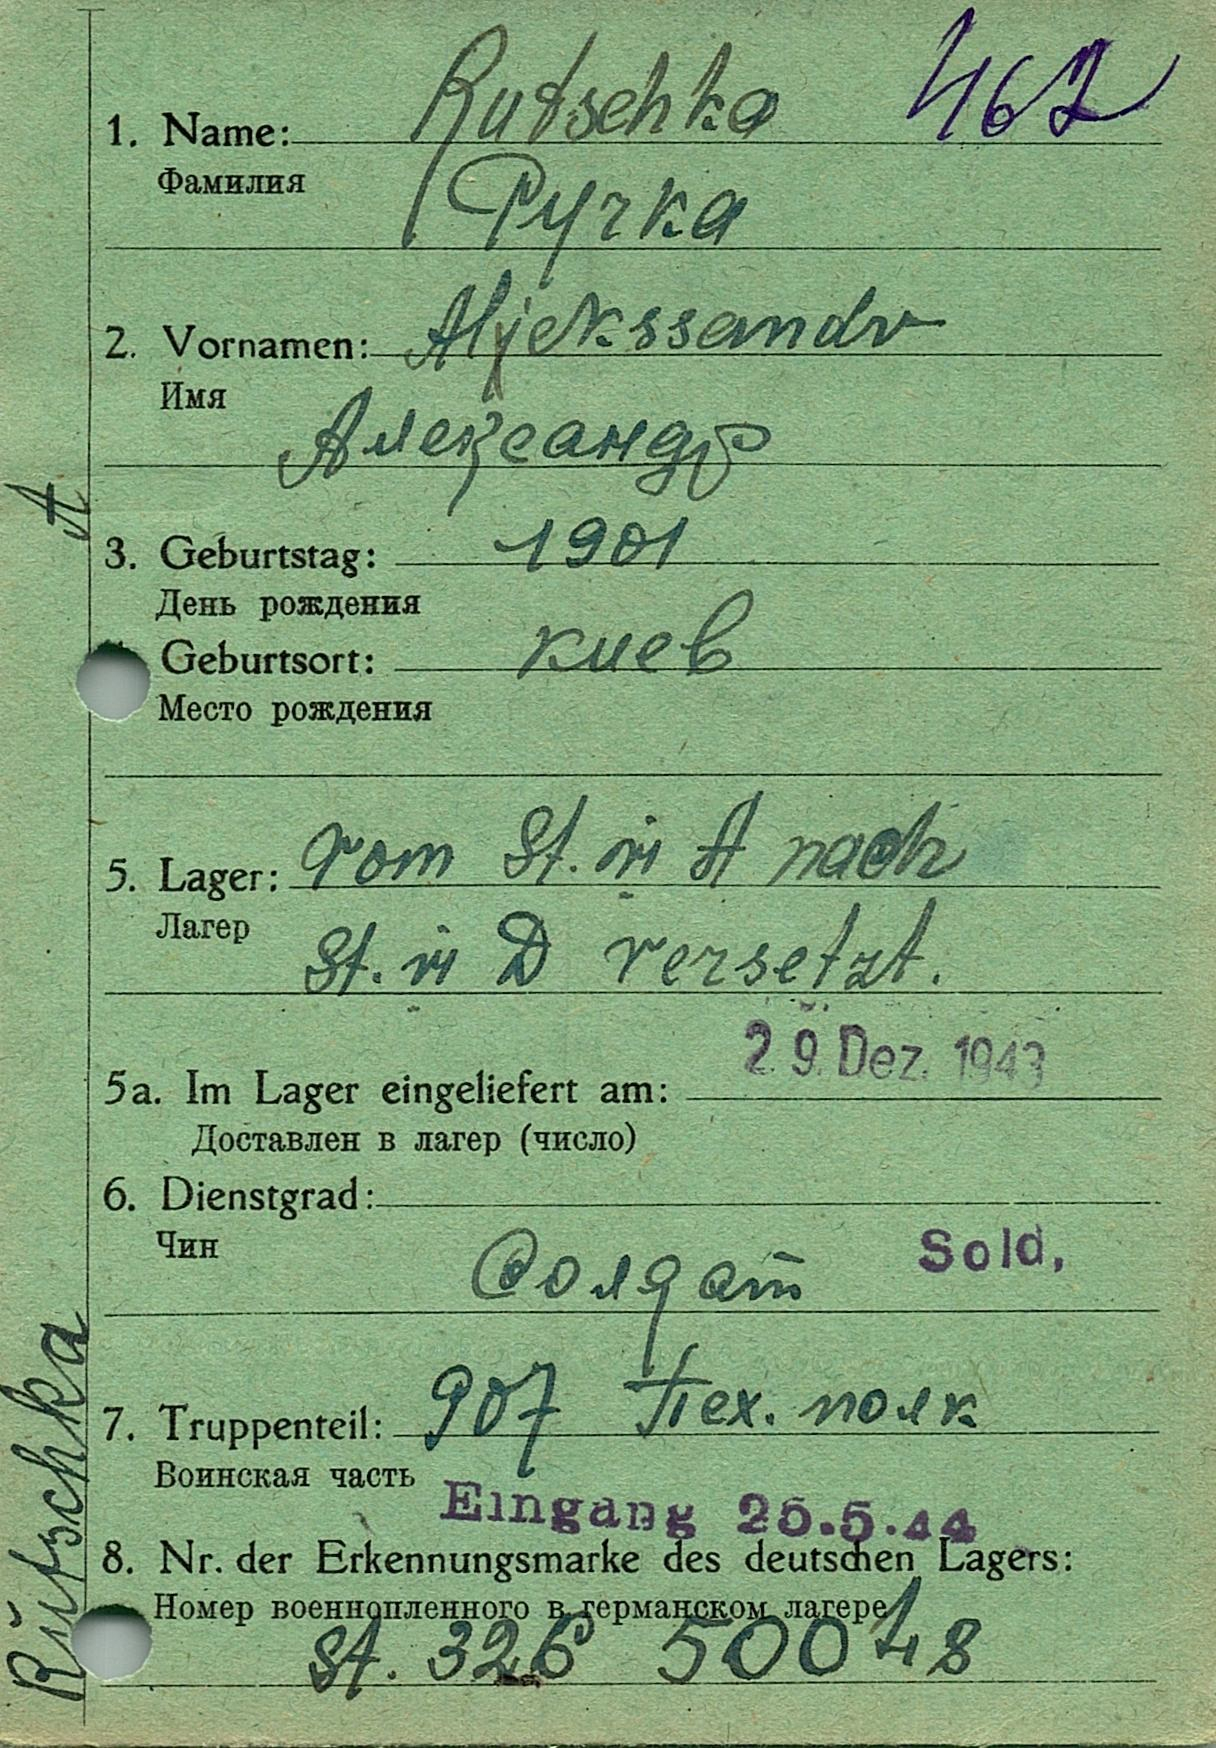 467
1. Name: Rutschka
Фамилия
Ручка
2. Vornamen: Aljekssandr
Имя
Александр
A
3. Geburtstag: 1901
День рождения
Geburtsort: Киев
Место рождения
5. Lager: vom St. VI A nach
Лагер
St. VI D versetzt.
29. Dez. 1943
5a. Im Lager eingeliefert am:
Доставлен в лагер (число)
6. Dienstgrad:
Чин
Солдат Sold.
7. Truppenteil: 907 Пех. полк
Воинская часть
Eingang 25.5.44
8. Nr. der Erkennungsmarke des deutschen Lagers:
Номер военнопленного в германском лагере
St. 326 50048
Rutschka